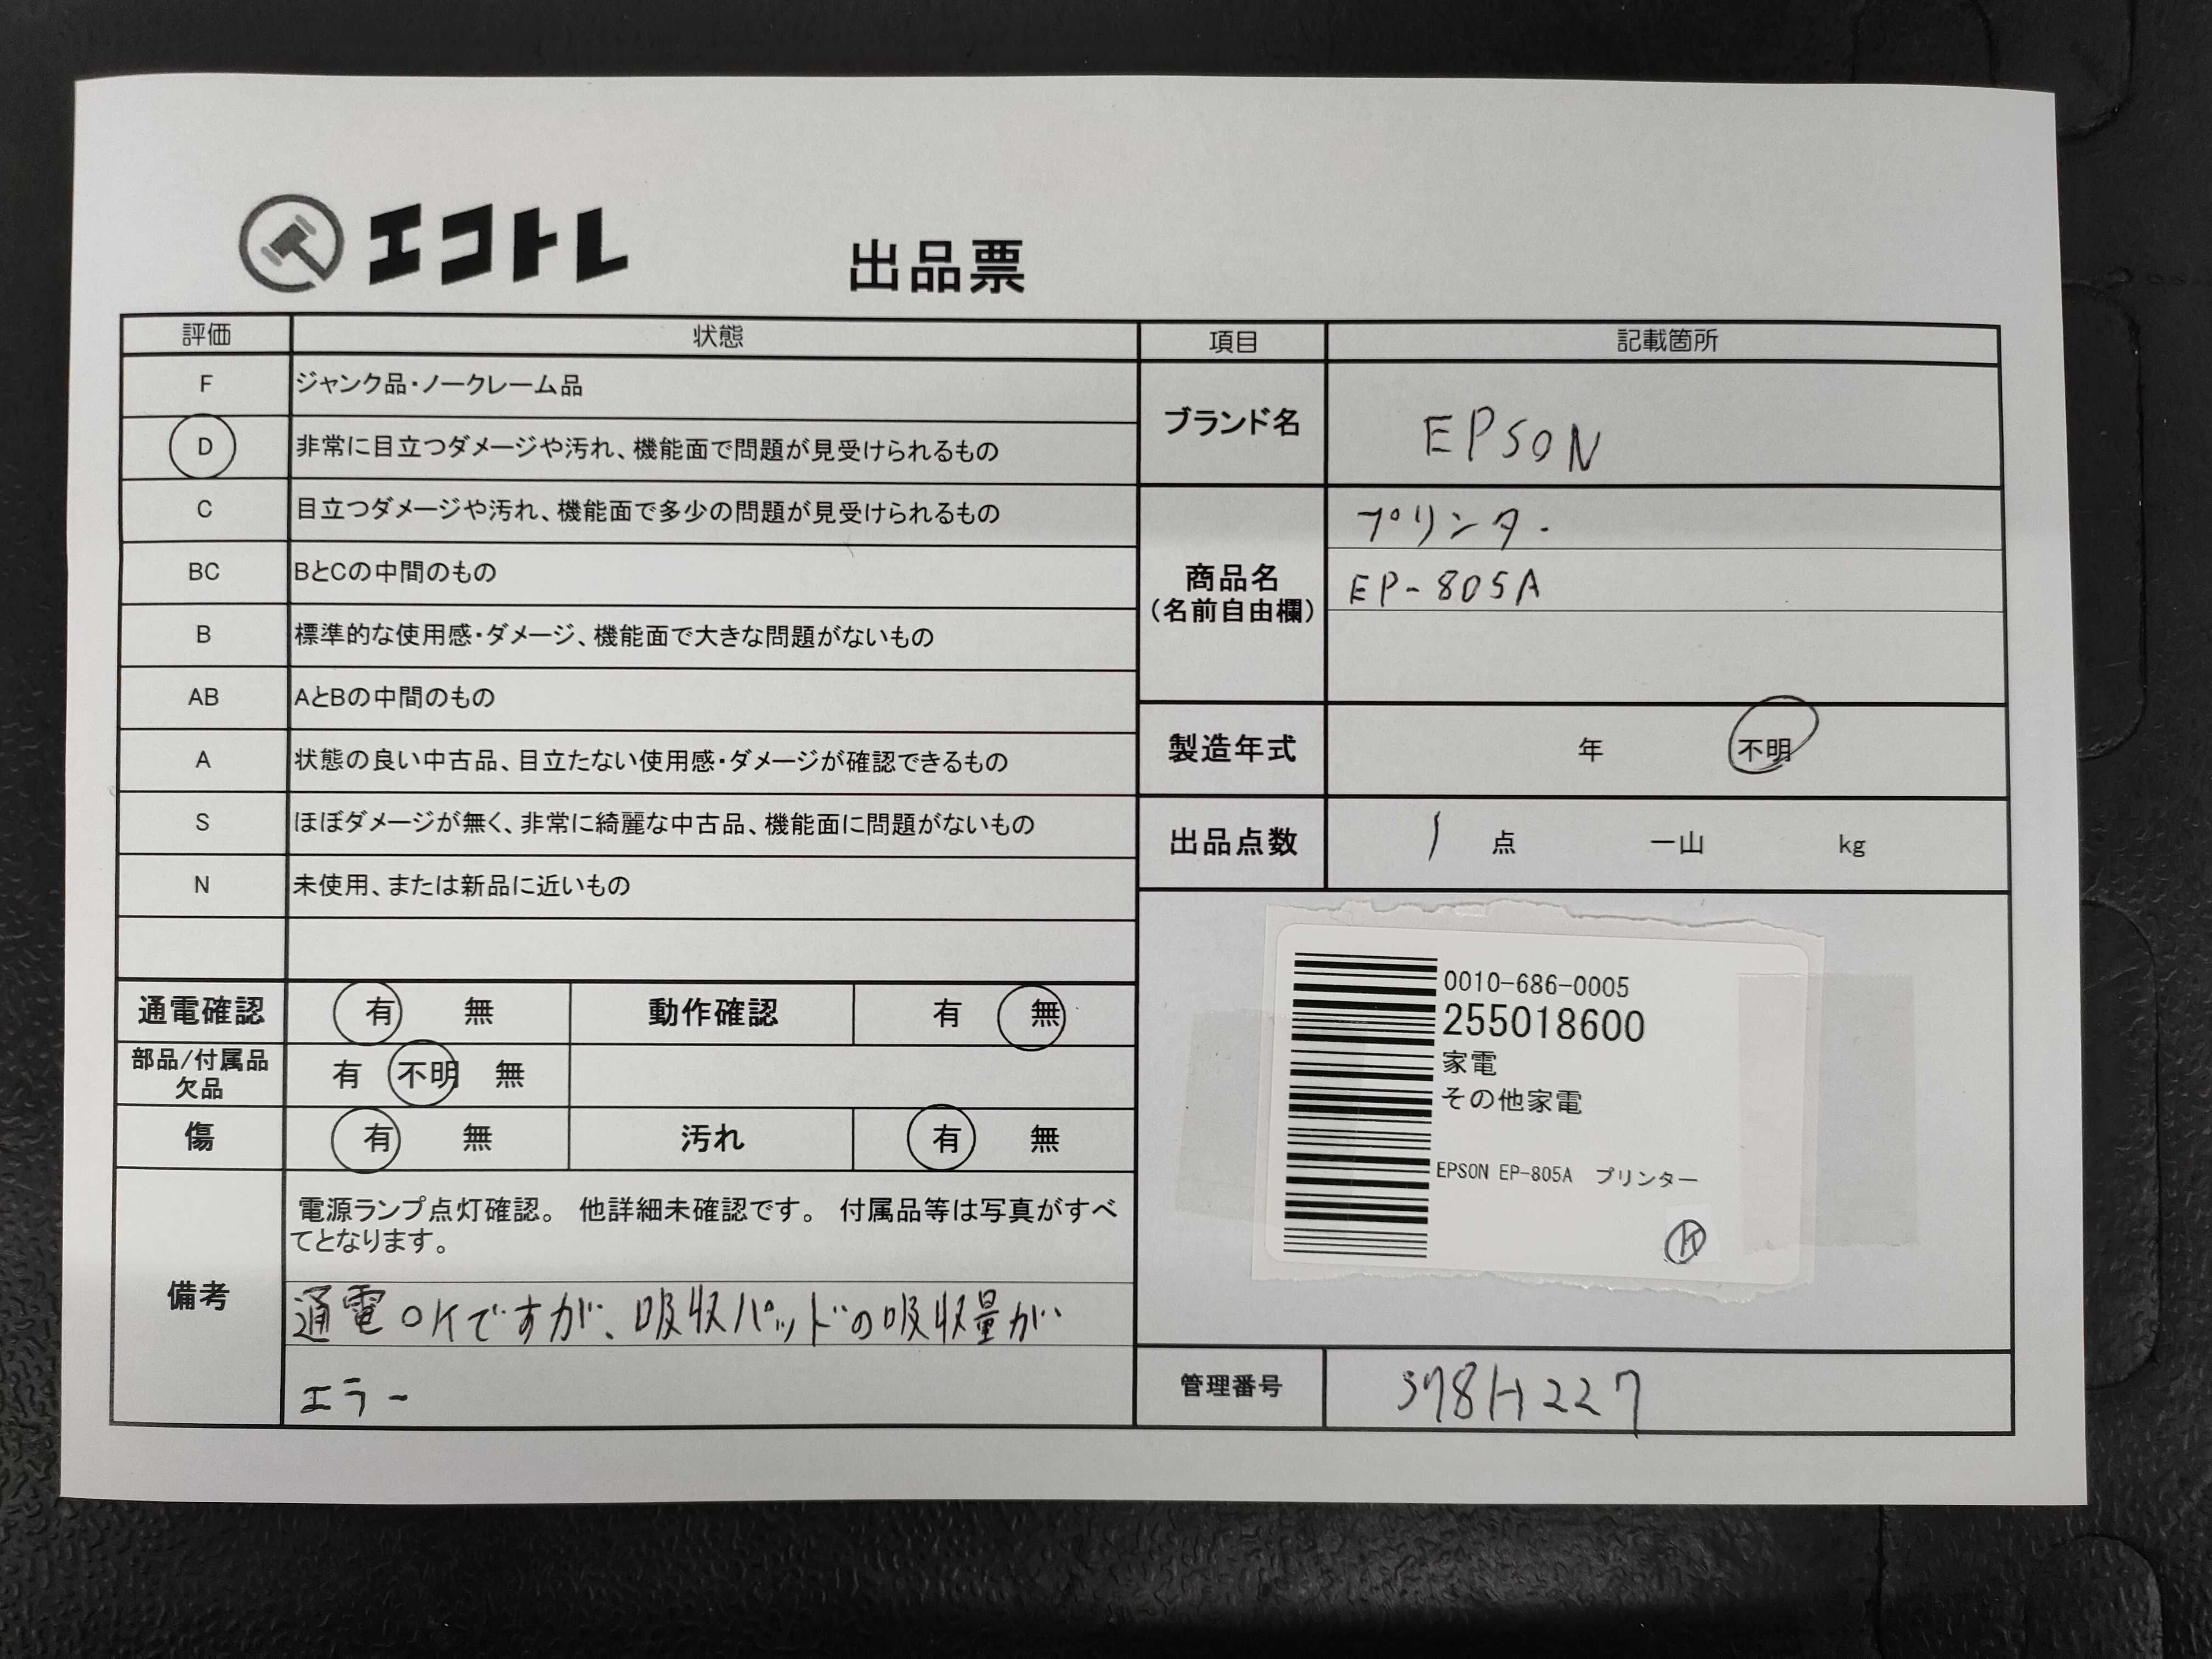 エコトレ
出品票
評価 状態
F ジャンク品・ノークレーム品
D 非常に目立つダメージや汚れ、機能面で問題が見受けられるもの
C 目立つダメージや汚れ、機能面で多少の問題が見受けられるもの
BC BとCの中間のもの
B 標準的な使用感・ダメージ、機能面で大きな問題がないもの
AB AとBの中間のもの
A 状態の良い中古品、目立たない使用感・ダメージが確認できるもの
S ほぼダメージが無く、非常に綺麗な中古品、機能面に問題がないもの
N 未使用、または新品に近いもの
通電確認 有 無 動作確認 有 無
部品/付属品
欠品 有 不明 無
傷 有 無 汚れ 有 無
備考
電源ランプ点灯確認。 他詳細未確認です。 付属品等は写真がすべ
てとなります。
通電OKですが、吸収パッドの吸収量が
エラー
項目 記載箇所
ブランド名 EPSON
商品名
(名前自由欄)
プリンター
EP-805A
製造年式 年 不明
出品点数 1 点 一山 kg
0010-686-0005
255018600
家電
その他家電
EPSON EP-805A プリンター
K
管理番号 378H227